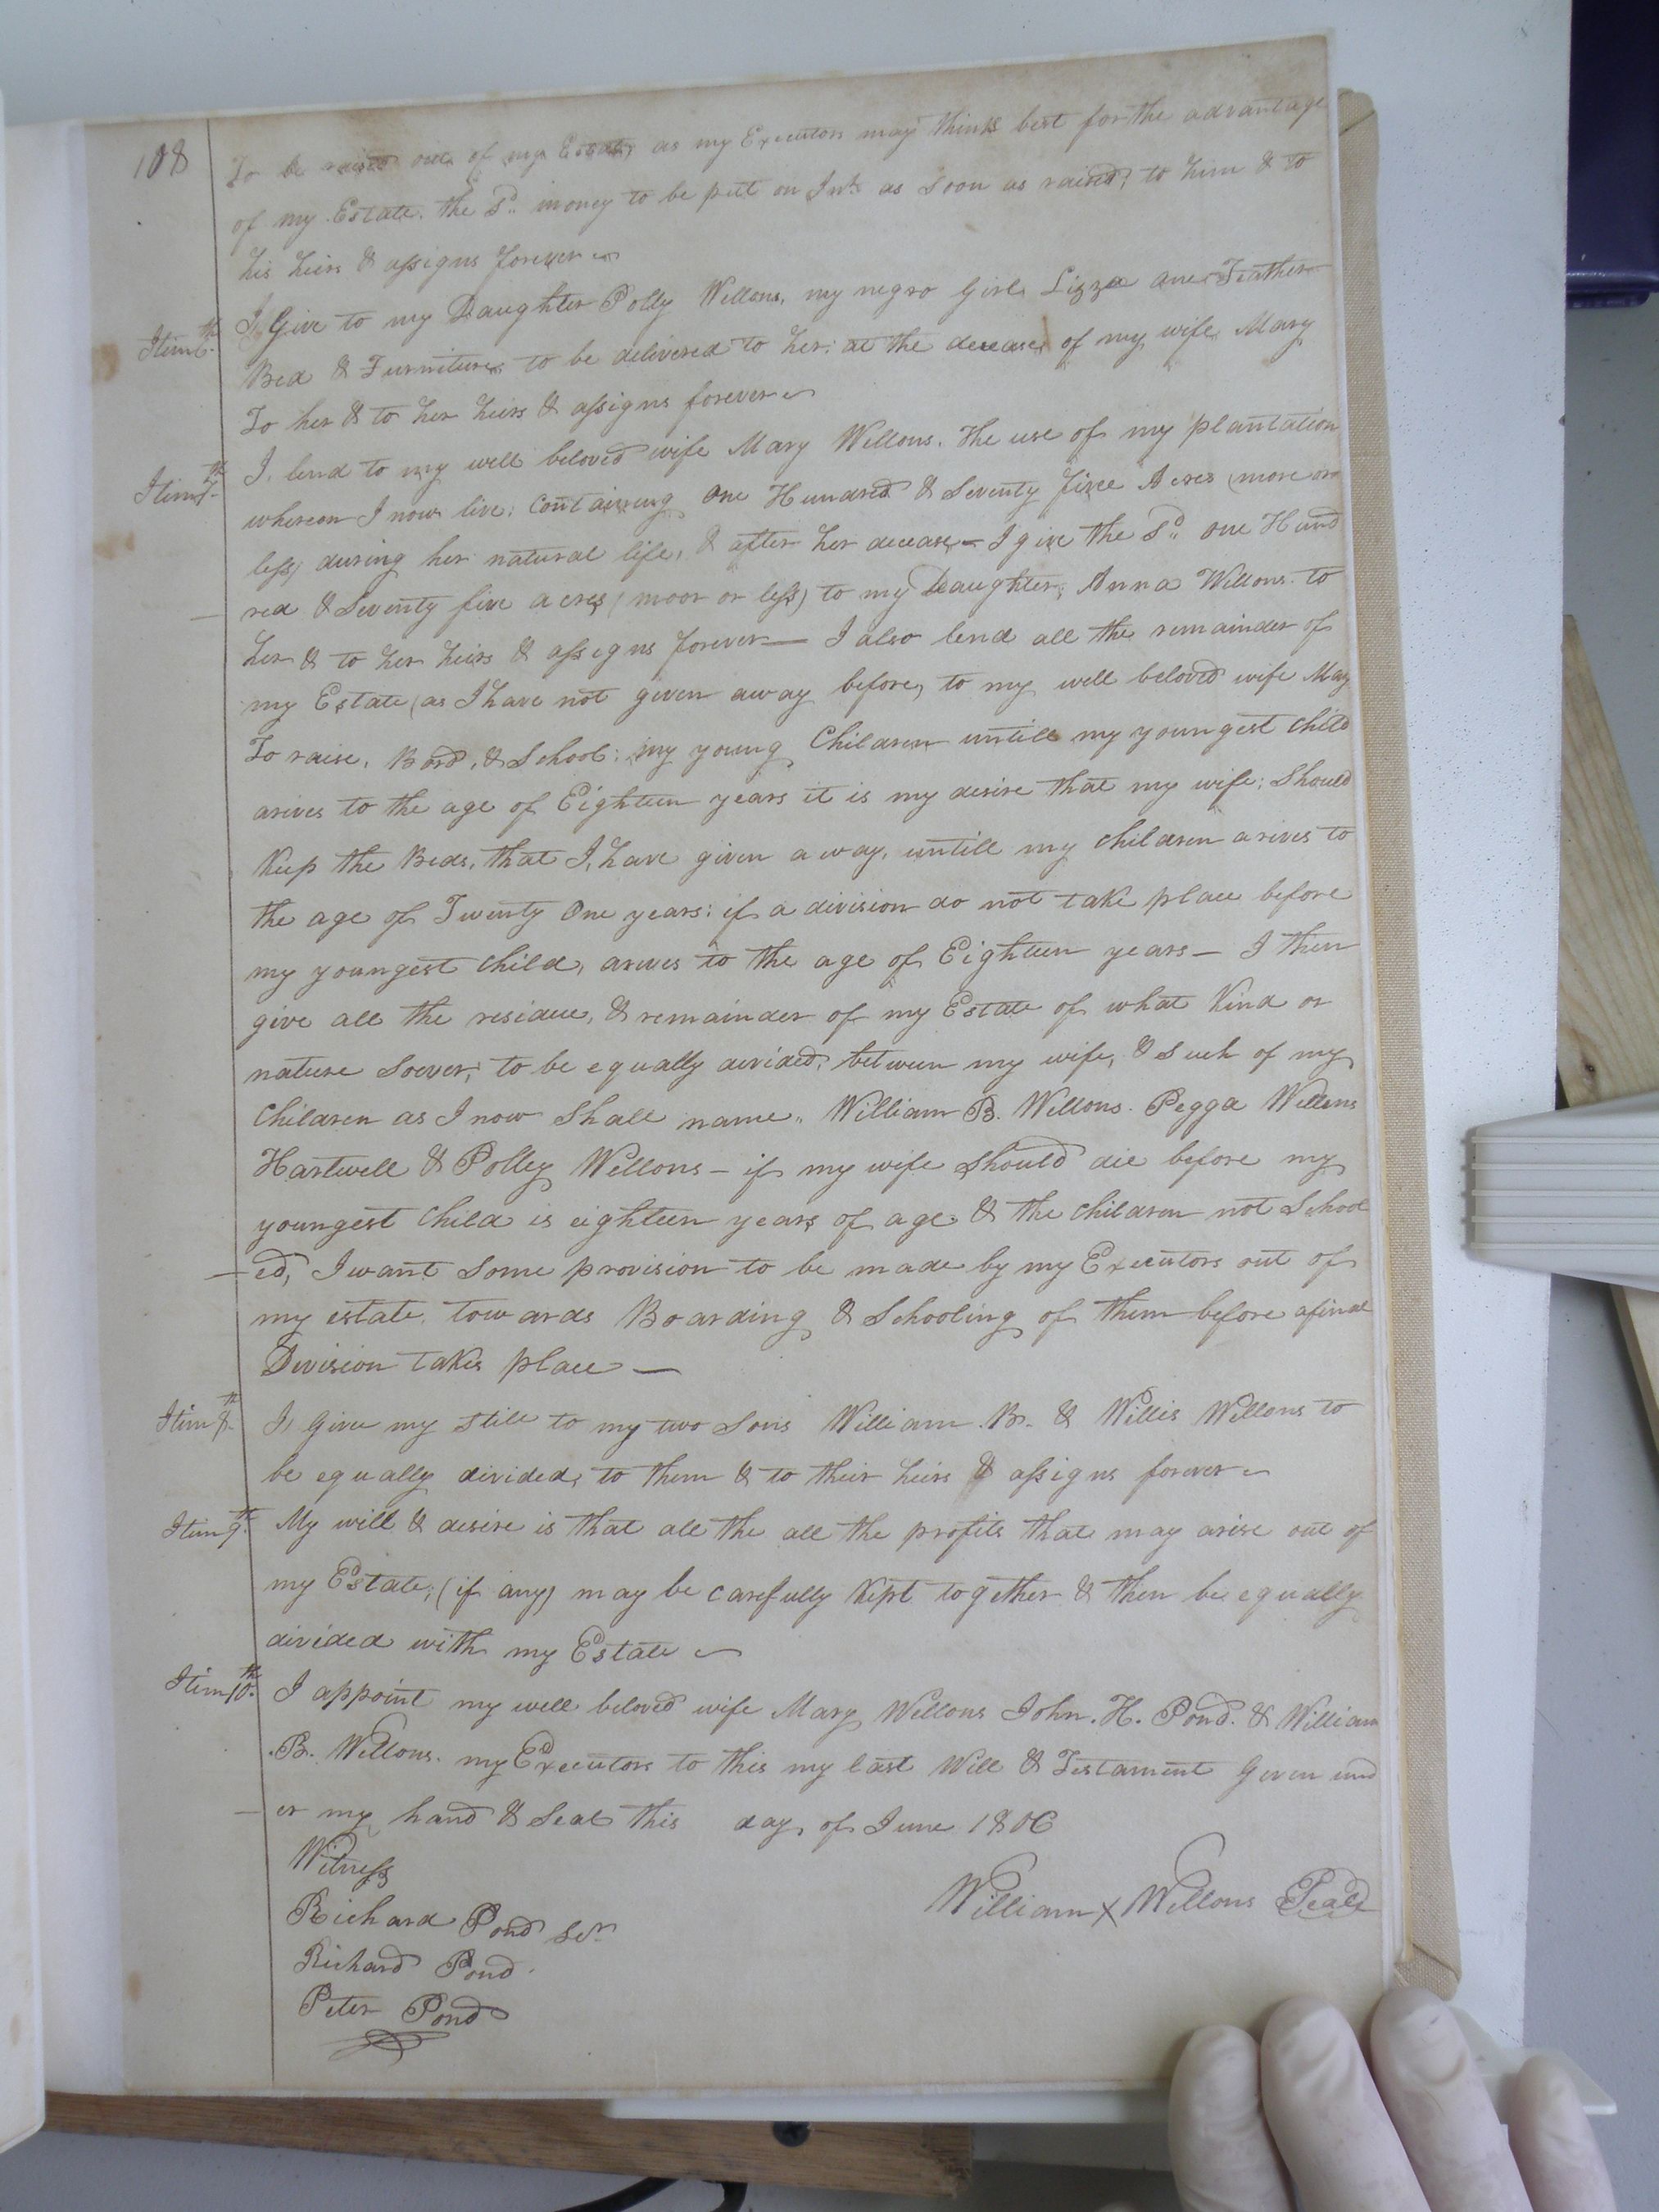 108
To be raised out of my Estate, as my Executors may think best for the advantage
of my Estate. the Sd. money to be put on Int. as soon as raised; to him & to
his heirs & assigns forever
Item 6th. I, Give to my Daughter Polly Wellons, my negro Girl Lizza one Feather
Bed & Furniture, to be delivered to her; at the decease of my wife Mary
To her & to her heirs & assigns forever
Item 7th. I, lend to my well beloved wife Mary Wellons. the use of my plantation
whereon I now live; containing One Hundred & Seventy five Acres (more or
less) during her natural life, & after her decease – I give the Sd. one Hund
red & Seventy five acres (moor or less) to my Daughter; Anna Wellons. to
her & to her heirs & assigns forever — I also lend all the remainder of
my Estate (as I have not given away before, to my well beloved wife Mary
To raise, Bord, & School; my young Children untill my youngest Child
arives to the age of Eighteen years it is my desire that my wife; Should
Keep the Beds, that I, have given away, untill my children arives to
the age of Twenty One years; if a division do not take place before
my youngest child, arives to the age of Eighteen years – I then
give all the residue, & remainder of my Estate of what Kind or
nature Soever; to be equally divided; between my wife, & Such of my
Children as I now Shall name,, William B. Wellons. Pegga Wellons
Hartwell & Polley Wellons – if my wife Should die before my
youngest child is eighteen years of age & the children not School
–ed, I want Some provision to be made by my Executors out of
my estate, towards Boarding & Schooling of them before a final
Division takes place —
Item 8th. I, Give my Still to my two Sons William B. & Willis Wellons to
be equally divided, to them & to their heirs & assigns forever
Item 9th. My will & desire is that all the all the profits that may arise out of
my Estate; (if any) may be carefully Kept together & then be equally
divided with my Estate
Item 10th. I appoint my well beloved wife Mary Wellons John. H. Pond. & William
B. Wellons. my Executors to this my last Will & Testament Given und
–er my hand & Seal this day of June 1806
Witness
William X Wellons Seal
Richard Pond Sr.
Richard Pond.
Peter Pond